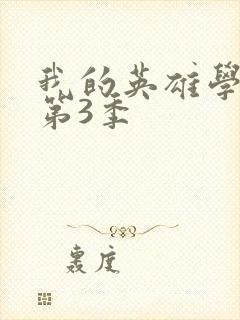 我的英雄學
第3季
轰度